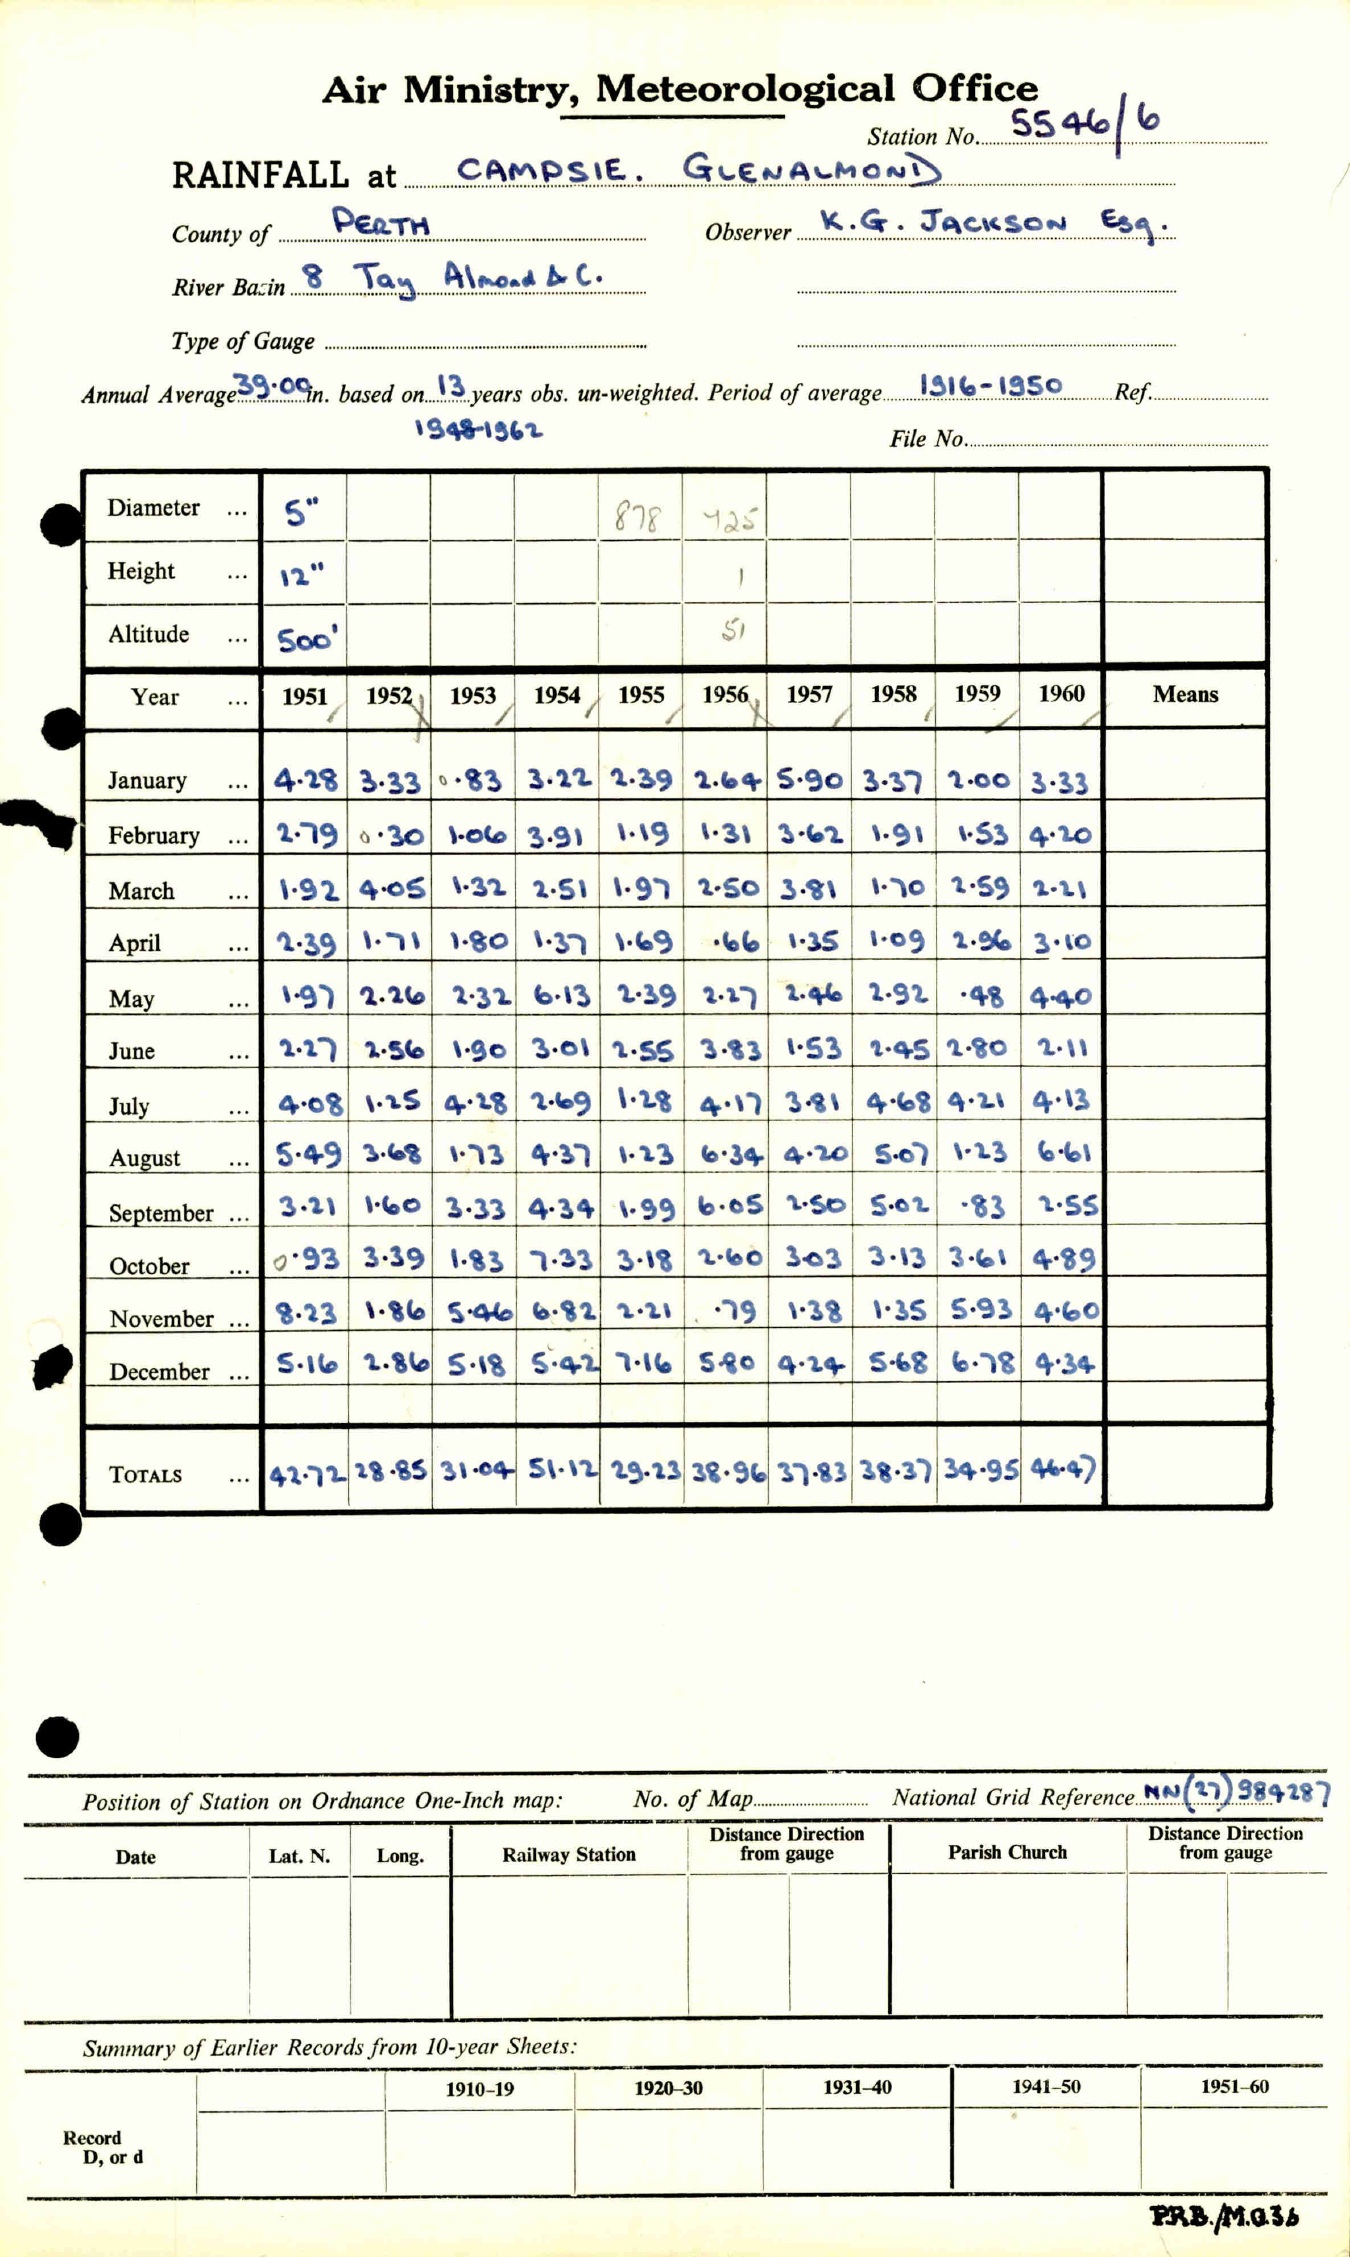 Air Ministry, Meteorological Office
Station No. 5546/6
RAINFALL at CAMPSIE. GLENALMOND
County of PERTH Observer K.G. JACKSON Esq.
River Basin 8 Tay Almond & C.
Type of Gauge
Annual Average 39.00 in. based on 13 years obs. un-weighted. Period of average 1916-1950 Ref.
1948-1962 File No.
Diameter ... 5" 878 425
Height ... 12" 1
Altitude ... 500' 51
Year ... 1951 1952 1953 1954 1955 1956 1957 1958 1959 1960 Means
January ... 4.28 3.33 0.83 3.22 2.39 2.64 5.90 3.37 2.00 3.33
February ... 2.79 0.30 1.06 3.91 1.19 1.31 3.62 1.91 1.53 4.20
March ... 1.92 4.05 1.32 2.51 1.97 2.50 3.81 1.70 2.59 2.21
April ... 2.39 1.71 1.80 1.37 1.69 .66 1.35 1.09 2.96 3.10
May ... 1.97 2.26 2.32 6.13 2.39 2.27 2.46 2.92 .48 4.40
June ... 2.27 2.56 1.90 3.01 2.55 3.83 1.53 2.45 2.80 2.11
July ... 4.08 1.25 4.28 2.69 1.28 4.17 3.81 4.68 4.21 4.13
August ... 5.49 3.68 1.73 4.37 1.23 6.34 4.20 5.07 1.23 6.61
September ... 3.21 1.60 3.33 4.34 1.99 6.05 2.50 5.02 .83 2.55
October ... 0.93 3.39 1.83 7.33 3.18 2.60 3.03 3.13 3.61 4.89
November ... 8.23 1.86 5.46 6.82 2.21 .79 1.38 1.35 5.93 4.60
December ... 5.16 2.86 5.18 5.42 7.16 5.80 4.24 5.68 6.78 4.34
TOTALS ... 42.72 28.85 31.04 51.12 29.23 38.96 37.83 38.37 34.95 46.47
Position of Station on Ordnance One-Inch map: No. of Map National Grid Reference NN(27)984287
Date Lat. N. Long. Railway Station Distance Direction from gauge Parish Church Distance Direction from gauge
Summary of Earlier Records from 10-year Sheets:
1910–19 1920–30 1931–40 1941–50 1951–60
Record
D, or d
P.R.B./M.O.36